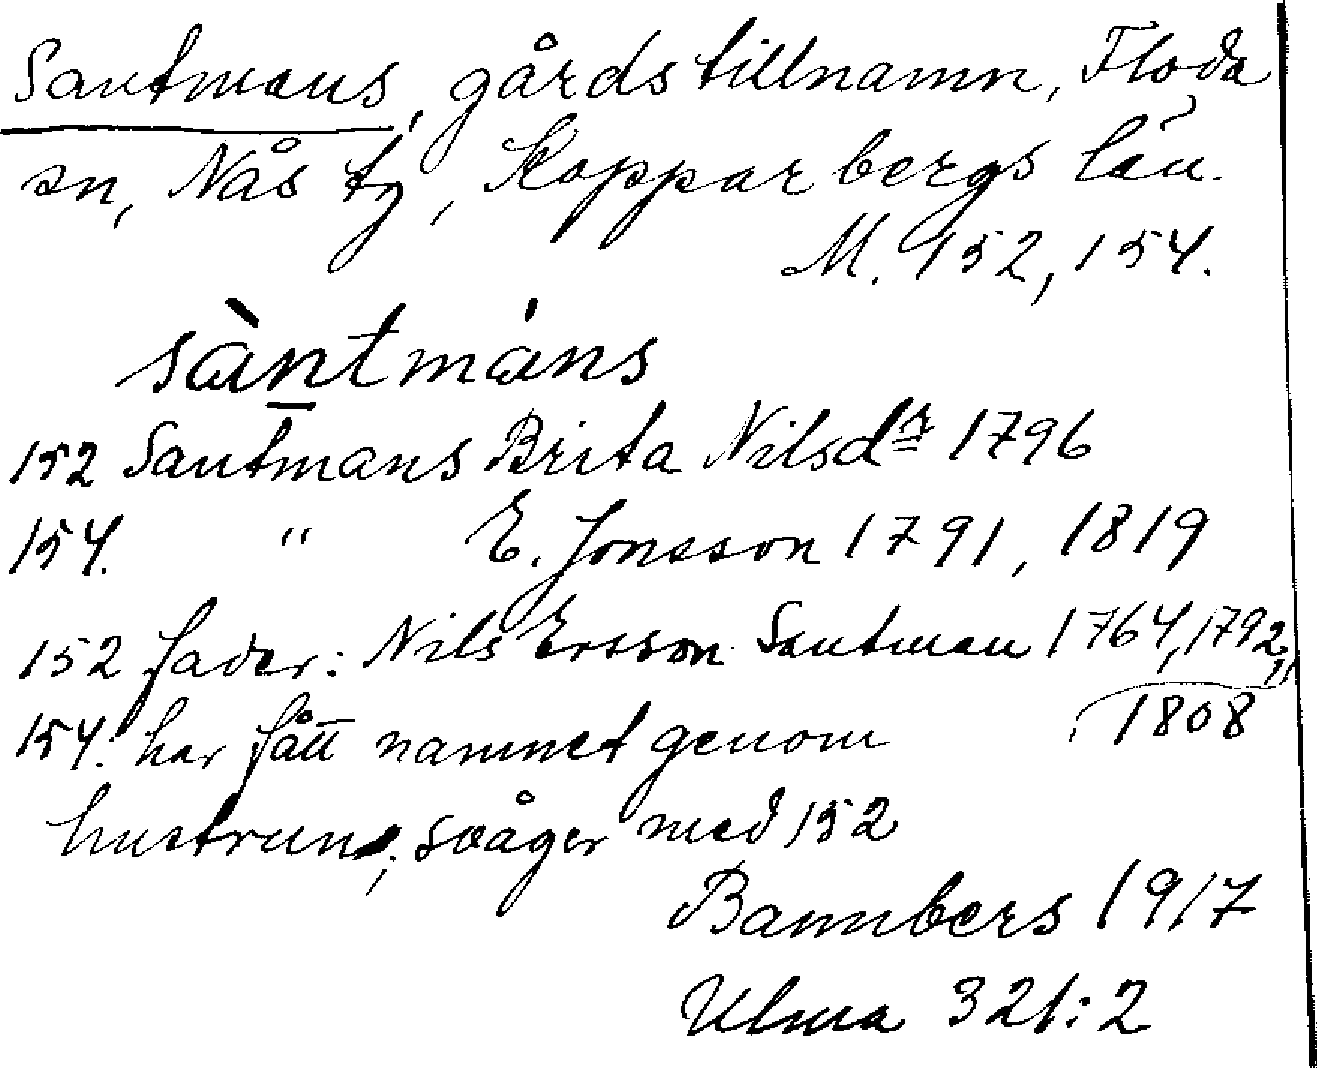 Santmans, gårdstillnamn, Floda
sn, Nås tg, Kopparbergs län.
M. 152, 154.
sàntmáns
152 Santmans Brita Nilsdr 1796
154. " E. Jonsson 1791, 1819
152 fader: Nils Ersson Santman 1764, 1792,
1808
154. har fått namnet genom
hustrun; svåger med 152
Bannbers 1917
Ulma 321:2